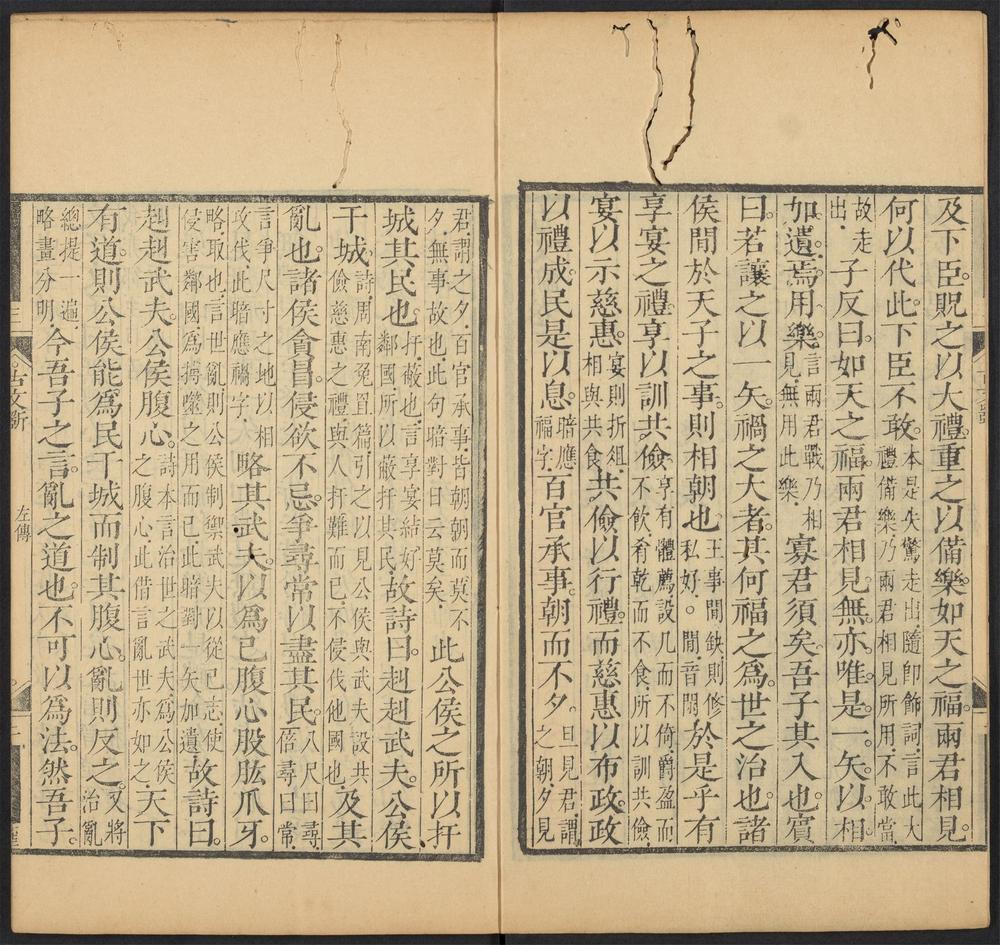 及下臣。貺之以大禮。重之以備樂。如天之福。兩君相見。
何以代此。下臣不敢。本是失驚走出。隨卽飾詞。言此大
禮備樂。乃兩君相見所用。不敢當。
故走
出。
子反曰。如天之福。兩君相見。無亦唯是一矢。以相
加遺。焉用樂。言兩君戰乃相
見。無用此樂。
寡君須矣。吾子其入也。賓
曰。若讓之以一矢。禍之大者。其何福之爲。世之治也。諸
侯間於天子之事。則相朝也。王事間缺則修
私好。○間音閑
於是乎有
享宴之禮。享以訓共儉。享有體薦。設几而不倚。爵盈而
不飲。肴乾而不食。所以訓共儉。
宴以示慈惠。宴則折俎。
相與共食。
共儉以行禮。而慈惠以布政。政
以禮成。民是以息。暗應
福字。
百官承事。朝而不夕。旦見君。謂
之朝。夕見
君。謂之夕。百官承事。皆朝朝而莫不
夕。無事故也。此句暗對日云莫矣。
此公侯之所以扞
城其民也。扞。蔽也。言享宴結好
鄰國。所以蔽扞其民。
故詩曰。赳赳武夫。公侯
干城。詩周南兔罝篇。引之以見公侯與武夫設共
儉慈惠之禮。與人扞難而已。不侵伐他國也。
及其
亂也。諸侯貪冒。侵欲不忌。爭尋常以盡其民。八尺曰尋。
倍尋曰常
言爭尺寸之地以相
攻伐。此暗應禍字。
略其武夫。以爲己腹心股肱爪牙。
略。取也。言世亂則公侯制禦武夫以從己志。使
侵害鄰國。爲搏噬之用而已。此暗對一矢加遺
故詩曰。
赳赳武夫。公侯腹心。詩本言治世之武夫。爲公侯
之腹心。此借言亂世亦如之。
天下
有道。則公侯能爲民干城。而制其腹心。亂則反之。又將
治亂
總提一遍。
略畫分明。
今吾子之言。亂之道也。不可以爲法。然吾子。
左傳